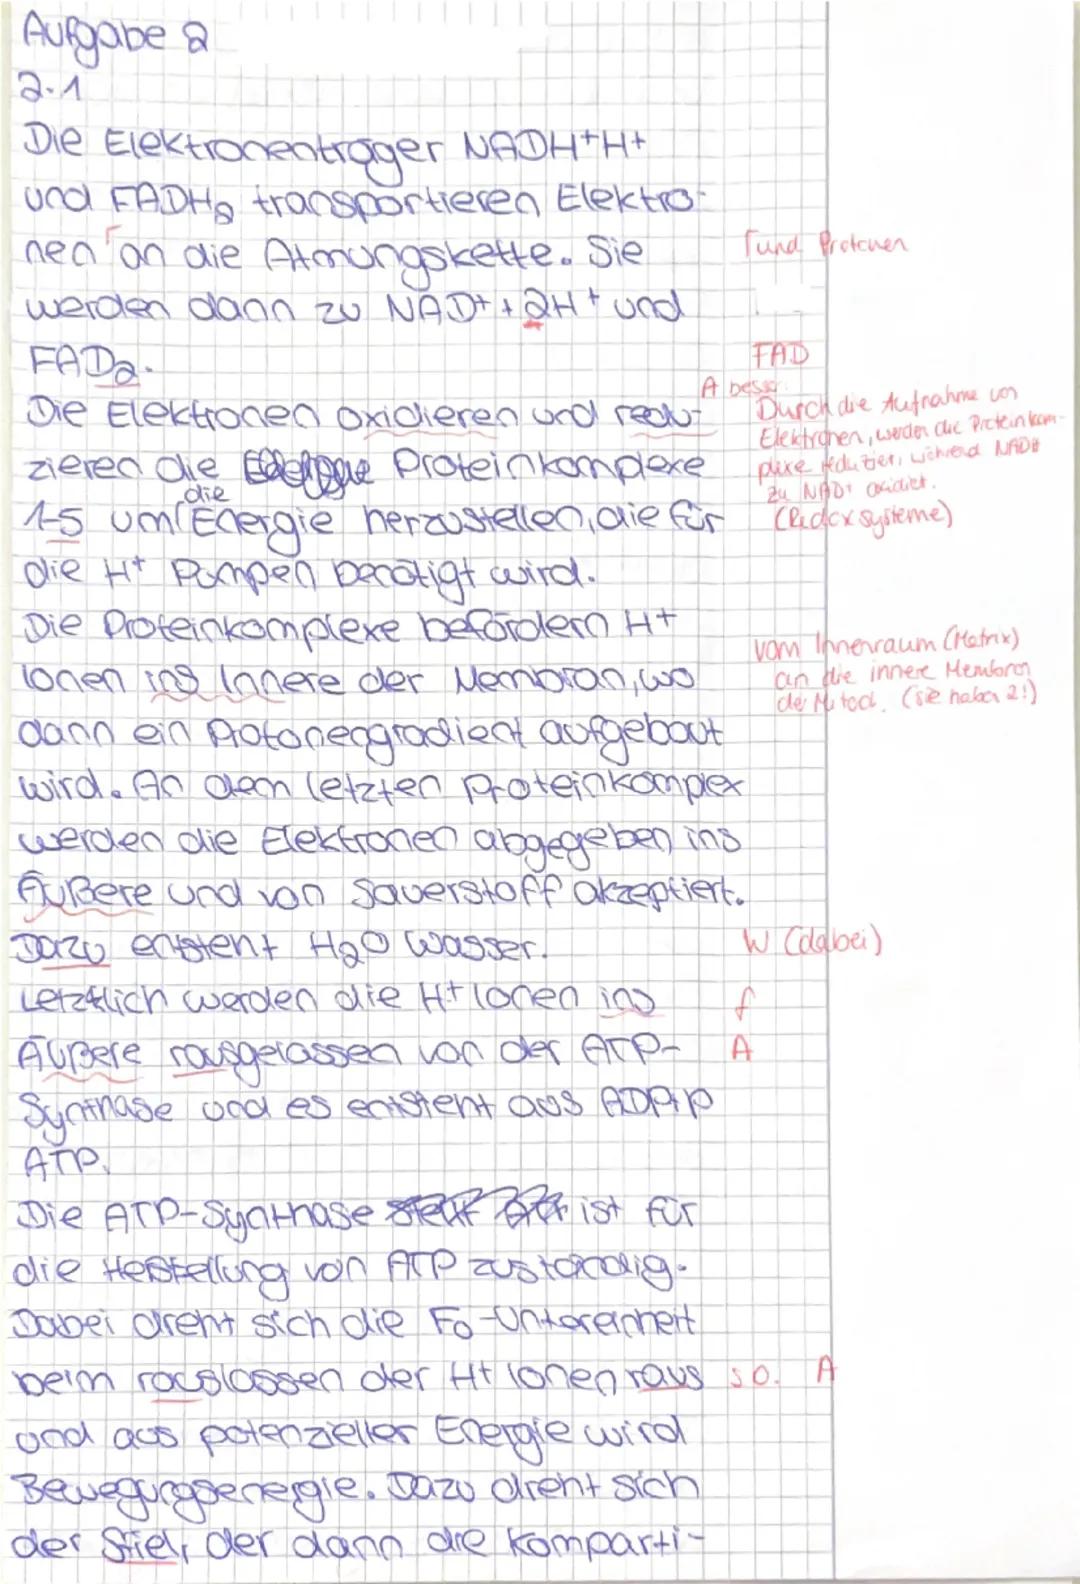 Aufgabe 2
2.1
Die Elektronenträger NADH+H+
und FADH2 transportieren Elektro-
nen an die Atmungskette. Sie
Γund Protonen
werden dann zu NAD+ + 2H+ und
FAD2.
FAD
A besser:
Die Elektronen oxidieren und redu-
Durch die Aufnahme von
Elektronen, werden die Proteinkom-
zieren die Proteinkomplexe
plexe reduziert, während NADH
die
zu NAD+ oxidiert.
1-5 um Energie herzustellen, die für
(Redoxsysteme)
die H+ Pumpen benötigt wird.
Die Proteinkomplexe befördern H+
vom Innenraum (Matrix)
Ionen ins Innere der Membran, wo
an die innere Membran
der Mitoch. (sie haben 2!)
dann ein Protonengradient aufgebaut
wird. An dem letzten Proteinkomplex
werden die Elektronen abgegeben ins
Äußere und von Sauerstoff akzeptiert.
Dazu entsteht H2O Wasser.
W (dabei)
Letztlich werden die H+ Ionen ins
f
Äußere rausgelassen von der ATP-
A
Synthase und es entsteht aus ADP+P
ATP.
Die ATP-Synthase ist für
die Herstellung von ATP zuständig.
Dabei dreht sich die F0-Untereinheit
beim rauslassen der H+ Ionen raus
s.o. A
und aus potenzieller Energie wird
Bewegungsenergie. Dazu dreht sich
der Stiel, der dann die Komparti-